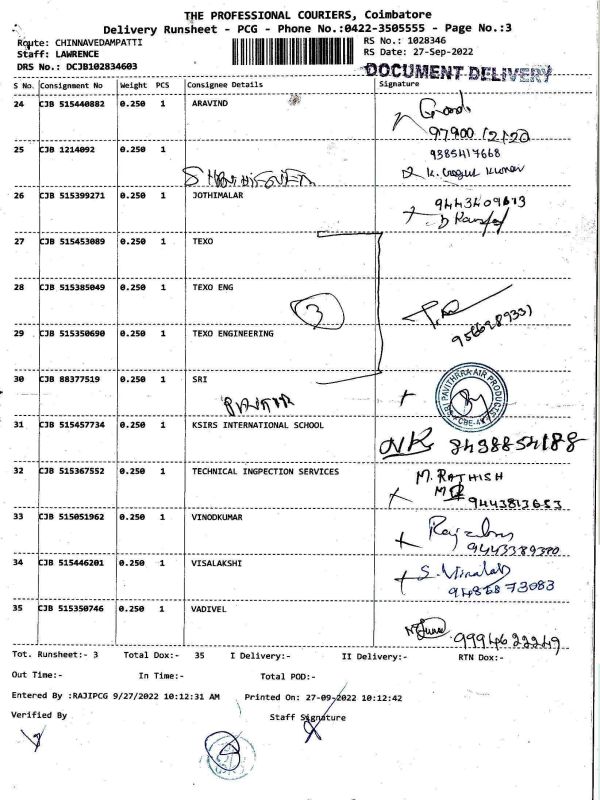 THE PROFESSIONAL COURIERS, Coimbatore
Delivery Runsheet - PCG - Phone No.:0422-3505555 - Page No.:3
Route: CHINNAVEDAMPATTI
RS No.: 1028346
Staff: LAWRENCE
RS Date: 27-Sep-2022
DRS No.: DCJB102834603
DOCUMENT DELIVERY
S No. Consignment No Weight PCS Consignee Details Signature
24 CJB 515440882 0.250 1 ARAVIND
97900 12120
25 CJB 1214092 0.250 1
9385417668
26 CJB 515399271 0.250 1 JOTHIMALAR
27 CJB 515453089 0.250 1 TEXO
28 CJB 515385049 0.250 1 TEXO ENG
3
29 CJB 515350690 0.250 1 TEXO ENGINEERING
30 CJB 88377519 0.250 1 SRI
SRI PAVITHRRA AIR PRODUCTS
31 CJB 515457734 0.250 1 KSIRS INTERNATIONAL SCHOOL
8438854188
32 CJB 515367552 0.250 1 TECHNICAL INGPECTION SERVICES
M. RATHISH
9443813653
33 CJB 515051962 0.250 1 VINODKUMAR
9443389380
34 CJB 515446201 0.250 1 VISALAKSHI
9486873083
35 CJB 515350746 0.250 1 VADIVEL
9994622249
Tot. Runsheet:- 3 Total Dox:- 35 I Delivery:- II Delivery:- RTN Dox:-
Out Time:- In Time:- Total POD:-
Entered By :RAJIPCG 9/27/2022 10:12:31 AM Printed On: 27-09-2022 10:12:42
Verified By Staff Signature